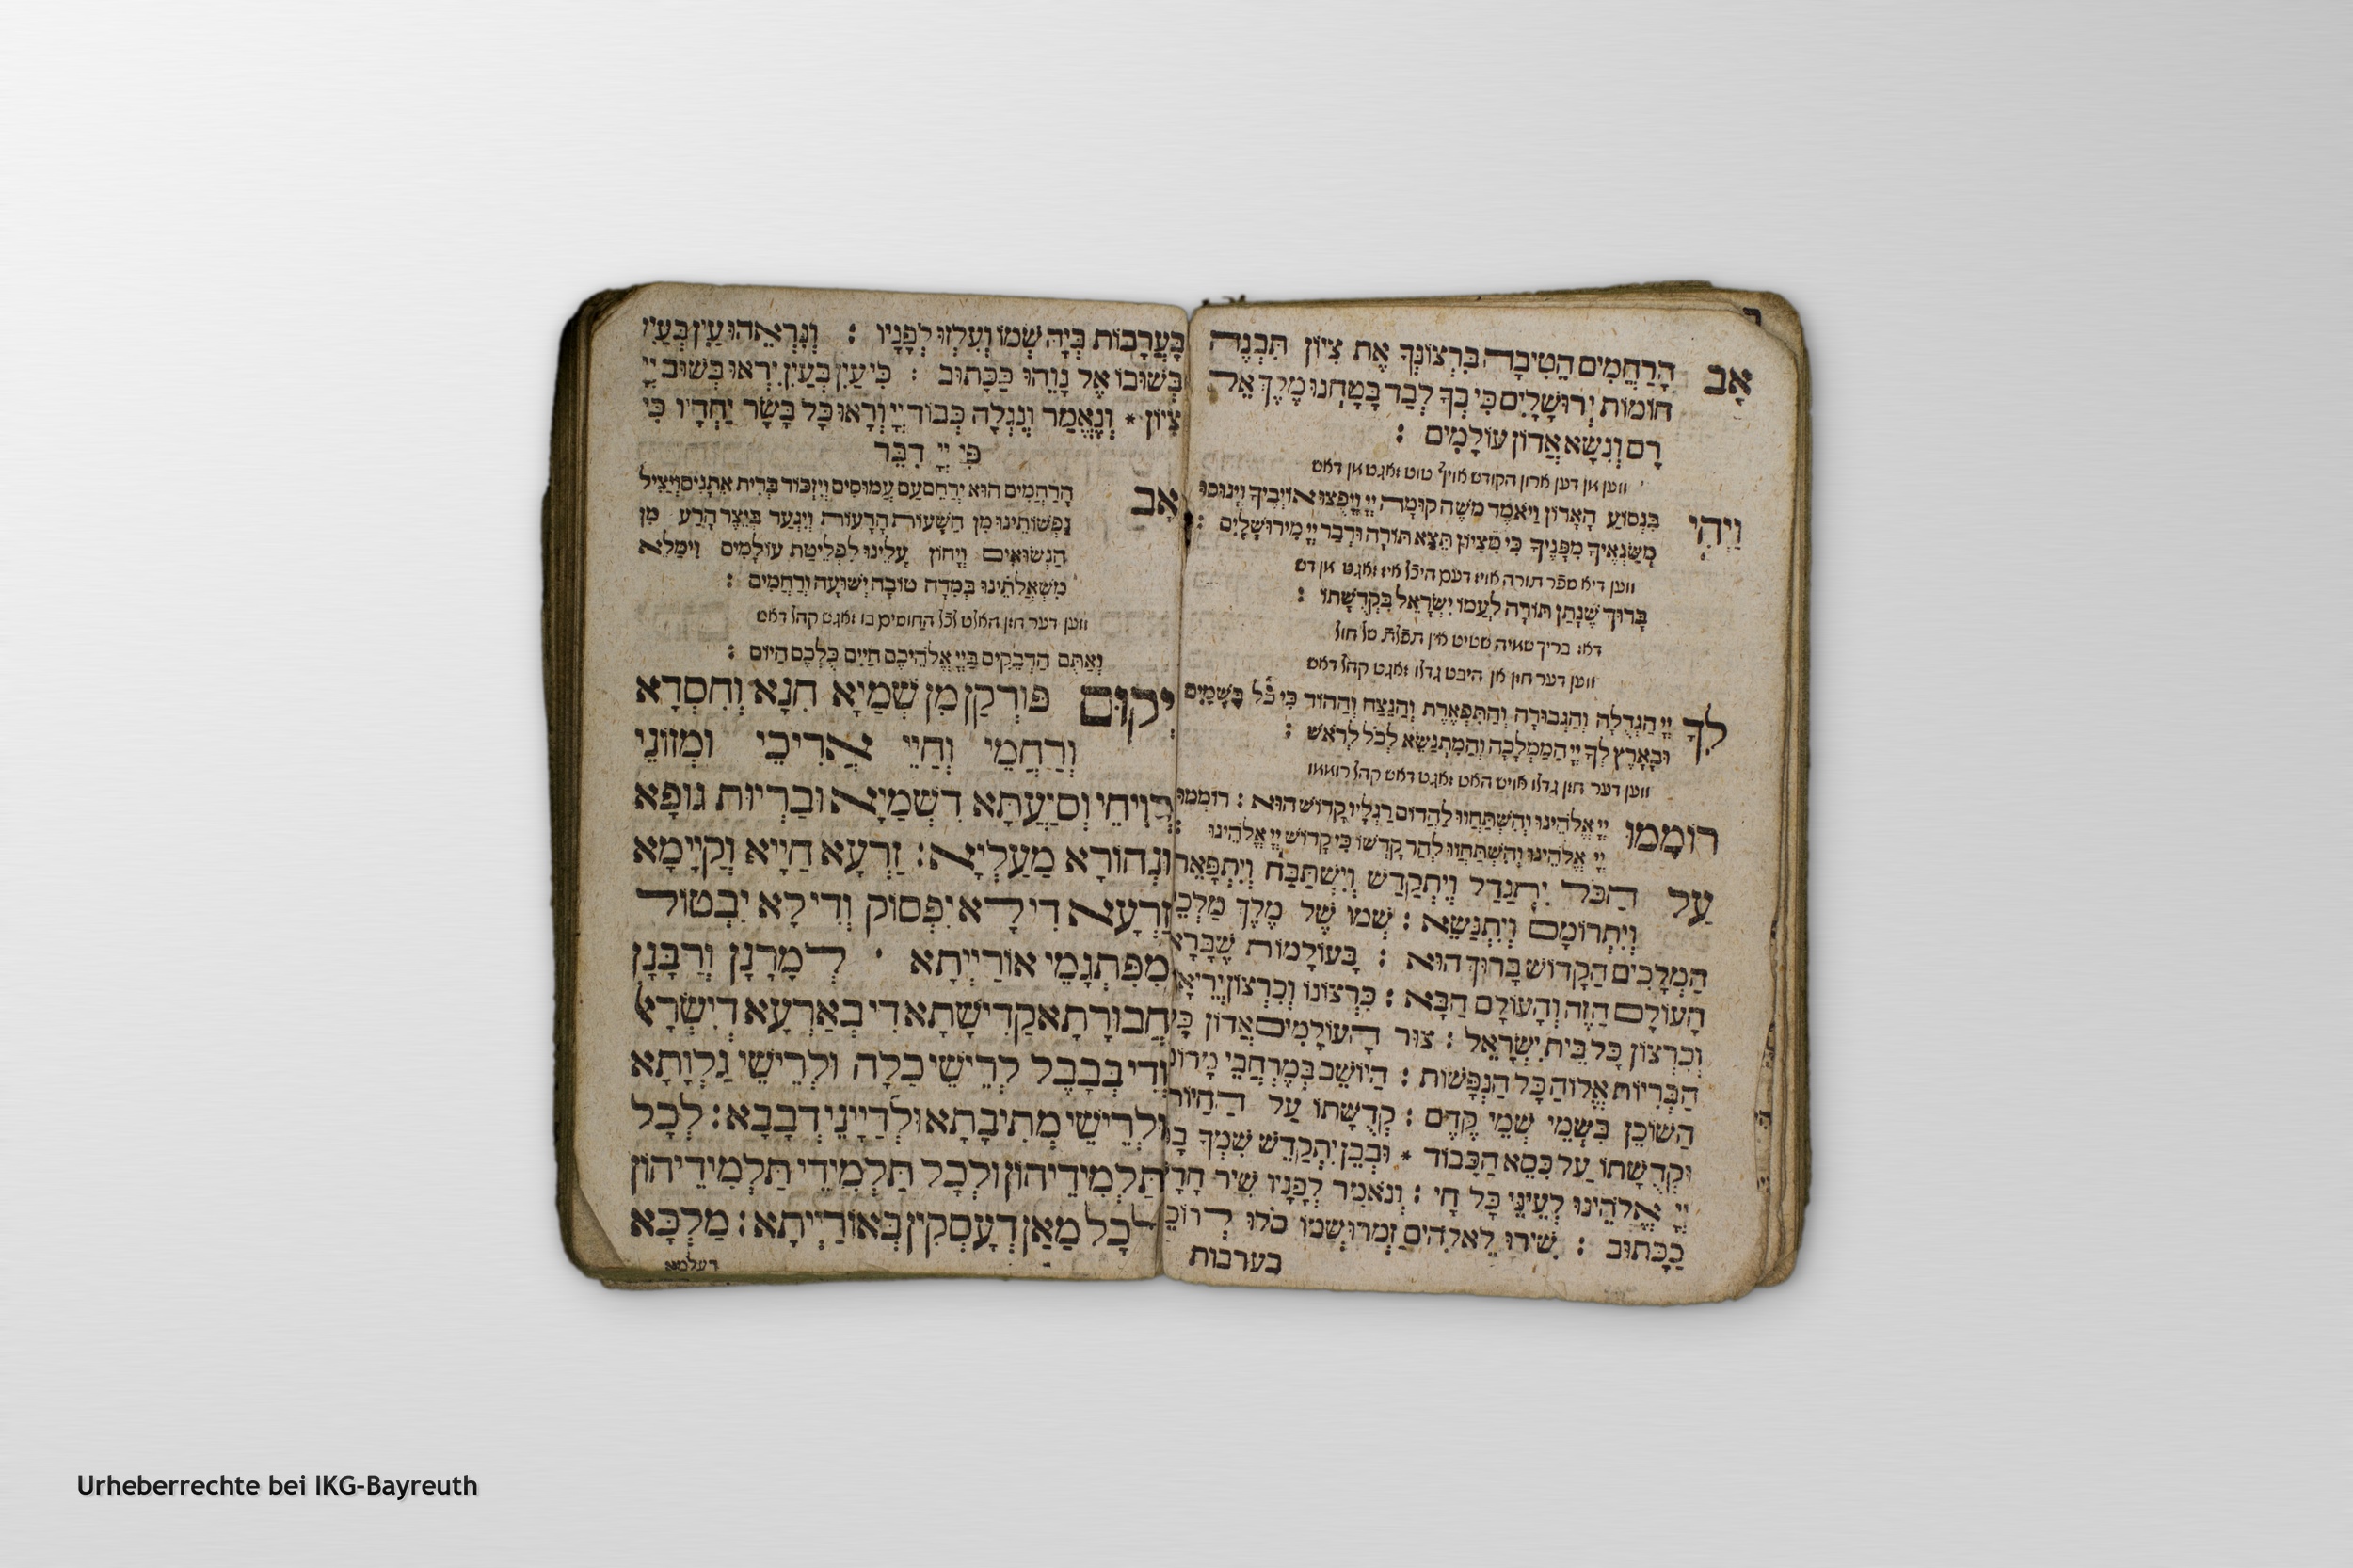 אָב הָרַחֲמִים הֵטִיבָה בִּרְצוֹנְךָ אֶת צִיּוֹן תִּבְנֶה
חוֹמוֹת יְרוּשָׁלָיִם כִּי בְךָ לְבַד בָּטָחְנוּ מֶלֶךְ אֵל
רָם וְנִשָּׂא אֲדוֹן עוֹלָמִים :
ווען אן דען ארון הקודש אויף טוט זאגט אן דאש
וַיְהִי בִּנְסוֹעַ הָאָרוֹן וַיֹּאמֶר משֶׁה קוּמָה יְיָ וְיָפֻצוּ אוֹיְבֶיךָ וְיָנוּסוּ
מְשַׂנְאֶיךָ מִפָּנֶיךָ כִּי מִצִּיּוֹן תֵּצֵא תוֹרָה וּדְבַר יְיָ מִירוּשָׁלָיִם :
ווען דיא ספר תורה אויז דעם היכל איז זאגט אן דש
בָּרוּךְ שֶׁנָּתַן תּוֹרָה לְעַמּוֹ יִשְׂרָאֵל בִּקְדֻשָּׁתוֹ :
דאז בריך שמיה שטיט אין תפלת של חול
ווען דער חזן אן היבט גדלו זאגט קהל דאש
לְךָ יְיָ הַגְּדֻלָּה וְהַגְּבוּרָה וְהַתִּפְאֶרֶת וְהַנֵּצַח וְהַהוֹד כִּי כֹל בַּשָּׁמַיִם
וּבָאָרֶץ לְךָ יְיָ הַמַּמְלָכָה וְהַמִּתְנַשֵּׂא לְכֹל לְרֹאשׁ :
ווען דער חזן גדלו אויש האט זאגט דאש קהל רוממו
רוֹמְמוּ יְיָ אֱלֹהֵינוּ וְהִשְׁתַּחֲווּ לַהֲדוֹם רַגְלָיו קָדוֹשׁ הוּא : רוֹמְמוּ
יְיָ אֱלֹהֵינוּ וְהִשְׁתַּחֲווּ לְהַר קָדְשׁוֹ כִּי קָדוֹשׁ יְיָ אֱלֹהֵינוּ :
עַל הַכֹּל יִתְגַּדַּל וְיִתְקַדַּשׁ וְיִשְׁתַּבַּח וְיִתְפָּאַר
וְיִתְרוֹמָם וְיִתְנַשֵּׂא : שְׁמוֹ שֶׁל מֶלֶךְ מַלְכֵי
הַמְּלָכִים הַקָּדוֹשׁ בָּרוּךְ הוּא : בָּעוֹלָמוֹת שֶׁבָּרָא
הָעוֹלָם הַזֶּה וְהָעוֹלָם הַבָּא : כִּרְצוֹנוֹ וְכִרְצוֹן יְרֵאָיו
וְכִרְצוֹן כָּל בֵּית יִשְׂרָאֵל : צוּר הָעוֹלָמִים אֲדוֹן כָּל
הַבְּרִיּוֹת אֱלוֹהַּ כָּל הַנְּפָשׁוֹת : הַיּוֹשֵׁב בְּמֶרְחֲבֵי מָרוֹם
הַשּׁוֹכֵן בִּשְׁמֵי שְׁמֵי קֶדֶם : קְדֻשָּׁתוֹ עַל הַחַיּוֹת
וּקְדֻשָּׁתוֹ עַל כִּסֵּא הַכָּבוֹד * וּבְכֵן יִתְקַדֵּשׁ שִׁמְךָ בָּנוּ
יְיָ אֱלֹהֵינוּ לְעֵינֵי כָּל חָי : וְנֹאמַר לְפָנָיו שִׁיר חָדָשׁ
כַּכָּתוּב : שִׁירוּ לֵאלֹהִים זַמְּרוּ שְׁמוֹ סֹלּוּ לָרוֹכֵב
בערבות
בָּעֲרָבוֹת בְּיָהּ שְׁמוֹ וְעִלְזוּ לְפָנָיו : וְנִרְאֵהוּ עַיִן בְּעַיִן
בְּשׁוּבוֹ אֶל נָוֵהוּ כַּכָּתוּב : כִּי עַיִן בְּעַיִן יִרְאוּ בְּשׁוּב יְיָ
צִיּוֹן * וְנֶאֱמַר וְנִגְלָה כְּבוֹד יְיָ וְרָאוּ כָל בָּשָׂר יַחְדָּיו כִּי
פִּי יְיָ דִּבֵּר
אָב הָרַחֲמִים הוּא יְרַחֵם עַם עֲמוּסִים וְיִזְכּוֹר בְּרִית אֵתָנִים וְיַצִּיל
נַפְשׁוֹתֵינוּ מִן הַשָּׁעוֹת הָרָעוֹת וְיִגְעַר בְּיֵצֶר הָרַע מִן
הַנְּשׂוּאִים וְיָחוֹן עָלֵינוּ לִפְלֵיטַת עוֹלָמִים וִימַלֵּא
מִשְׁאֲלֹתֵינוּ בְּמִדָּה טוֹבָה יְשׁוּעָה וְרַחֲמִים :
ווען דער חזן האלט לכל החוסים בו זאגט קהל דאש
וְאַתֶּם הַדְּבֵקִים בַּיְיָ אֱלֹהֵיכֶם חַיִּים כֻּלְּכֶם הַיּוֹם :
יְקוּם פּוּרְקָן מִן שְׁמַיָּא חִנָּא וְחִסְדָּא
וְרַחֲמֵי וְחַיֵּי אֲרִיכֵי וּמְזוֹנֵי
רְוִיחֵי וְסִיַּעֲתָּא דִשְׁמַיָּא וּבַרְיוּת גּוּפָא
וּנְהוֹרָא מַעַלְיָא : זַרְעָא חַיָּיא וְקַיָּימָא
זַרְעָא דִי לָא יִפְסוֹק וְדִי לָא יִבְטוֹל
מִפִּתְגָמֵי אוֹרַיְיתָא · לְמָרָנָן וְרַבָּנָן
חֲבוּרָתָא קַדִּישָׁתָא דִי בְאַרְעָא דְיִשְׂרָאֵל
וְדִי בְּבָבֶל לְרֵישֵׁי כַלָּה וּלְרֵישֵׁי גַלְוָתָא
וּלְרֵישֵׁי מְתִיבָתָא וּלְדַיָּינֵי דְבָבָא : לְכָל
תַּלְמִידֵיהוֹן וּלְכָל תַּלְמִידֵי תַלְמִידֵיהוֹן
לְכָל מַאַן דְּעָסְקִין בְּאוֹרַיְיתָא : מַלְכָּא
דעלמא
Urheberrechte bei IKG-Bayreuth